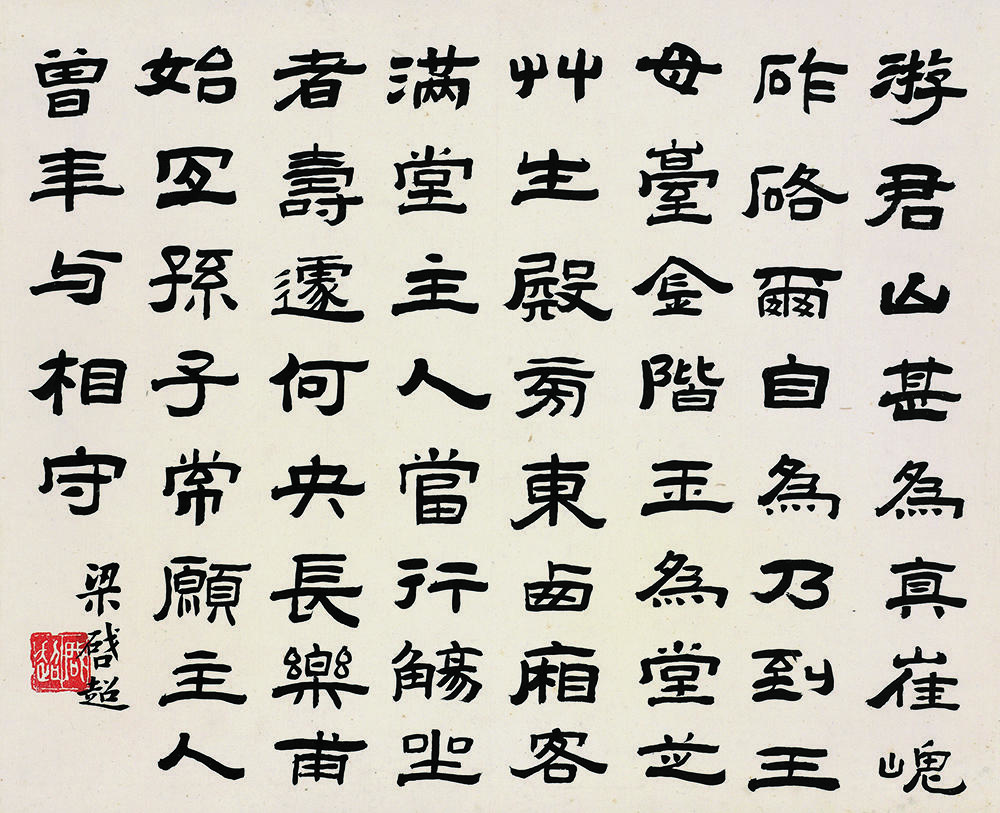 游君山甚為真崔嵬
砟硌爾自為乃到王
母臺金階玉為堂芝
艸生殿旁東西廂客
滿堂主人當行觴坐
者壽遽何央長樂甫
始宜孫子常願主人
曾年与相守
梁啓超